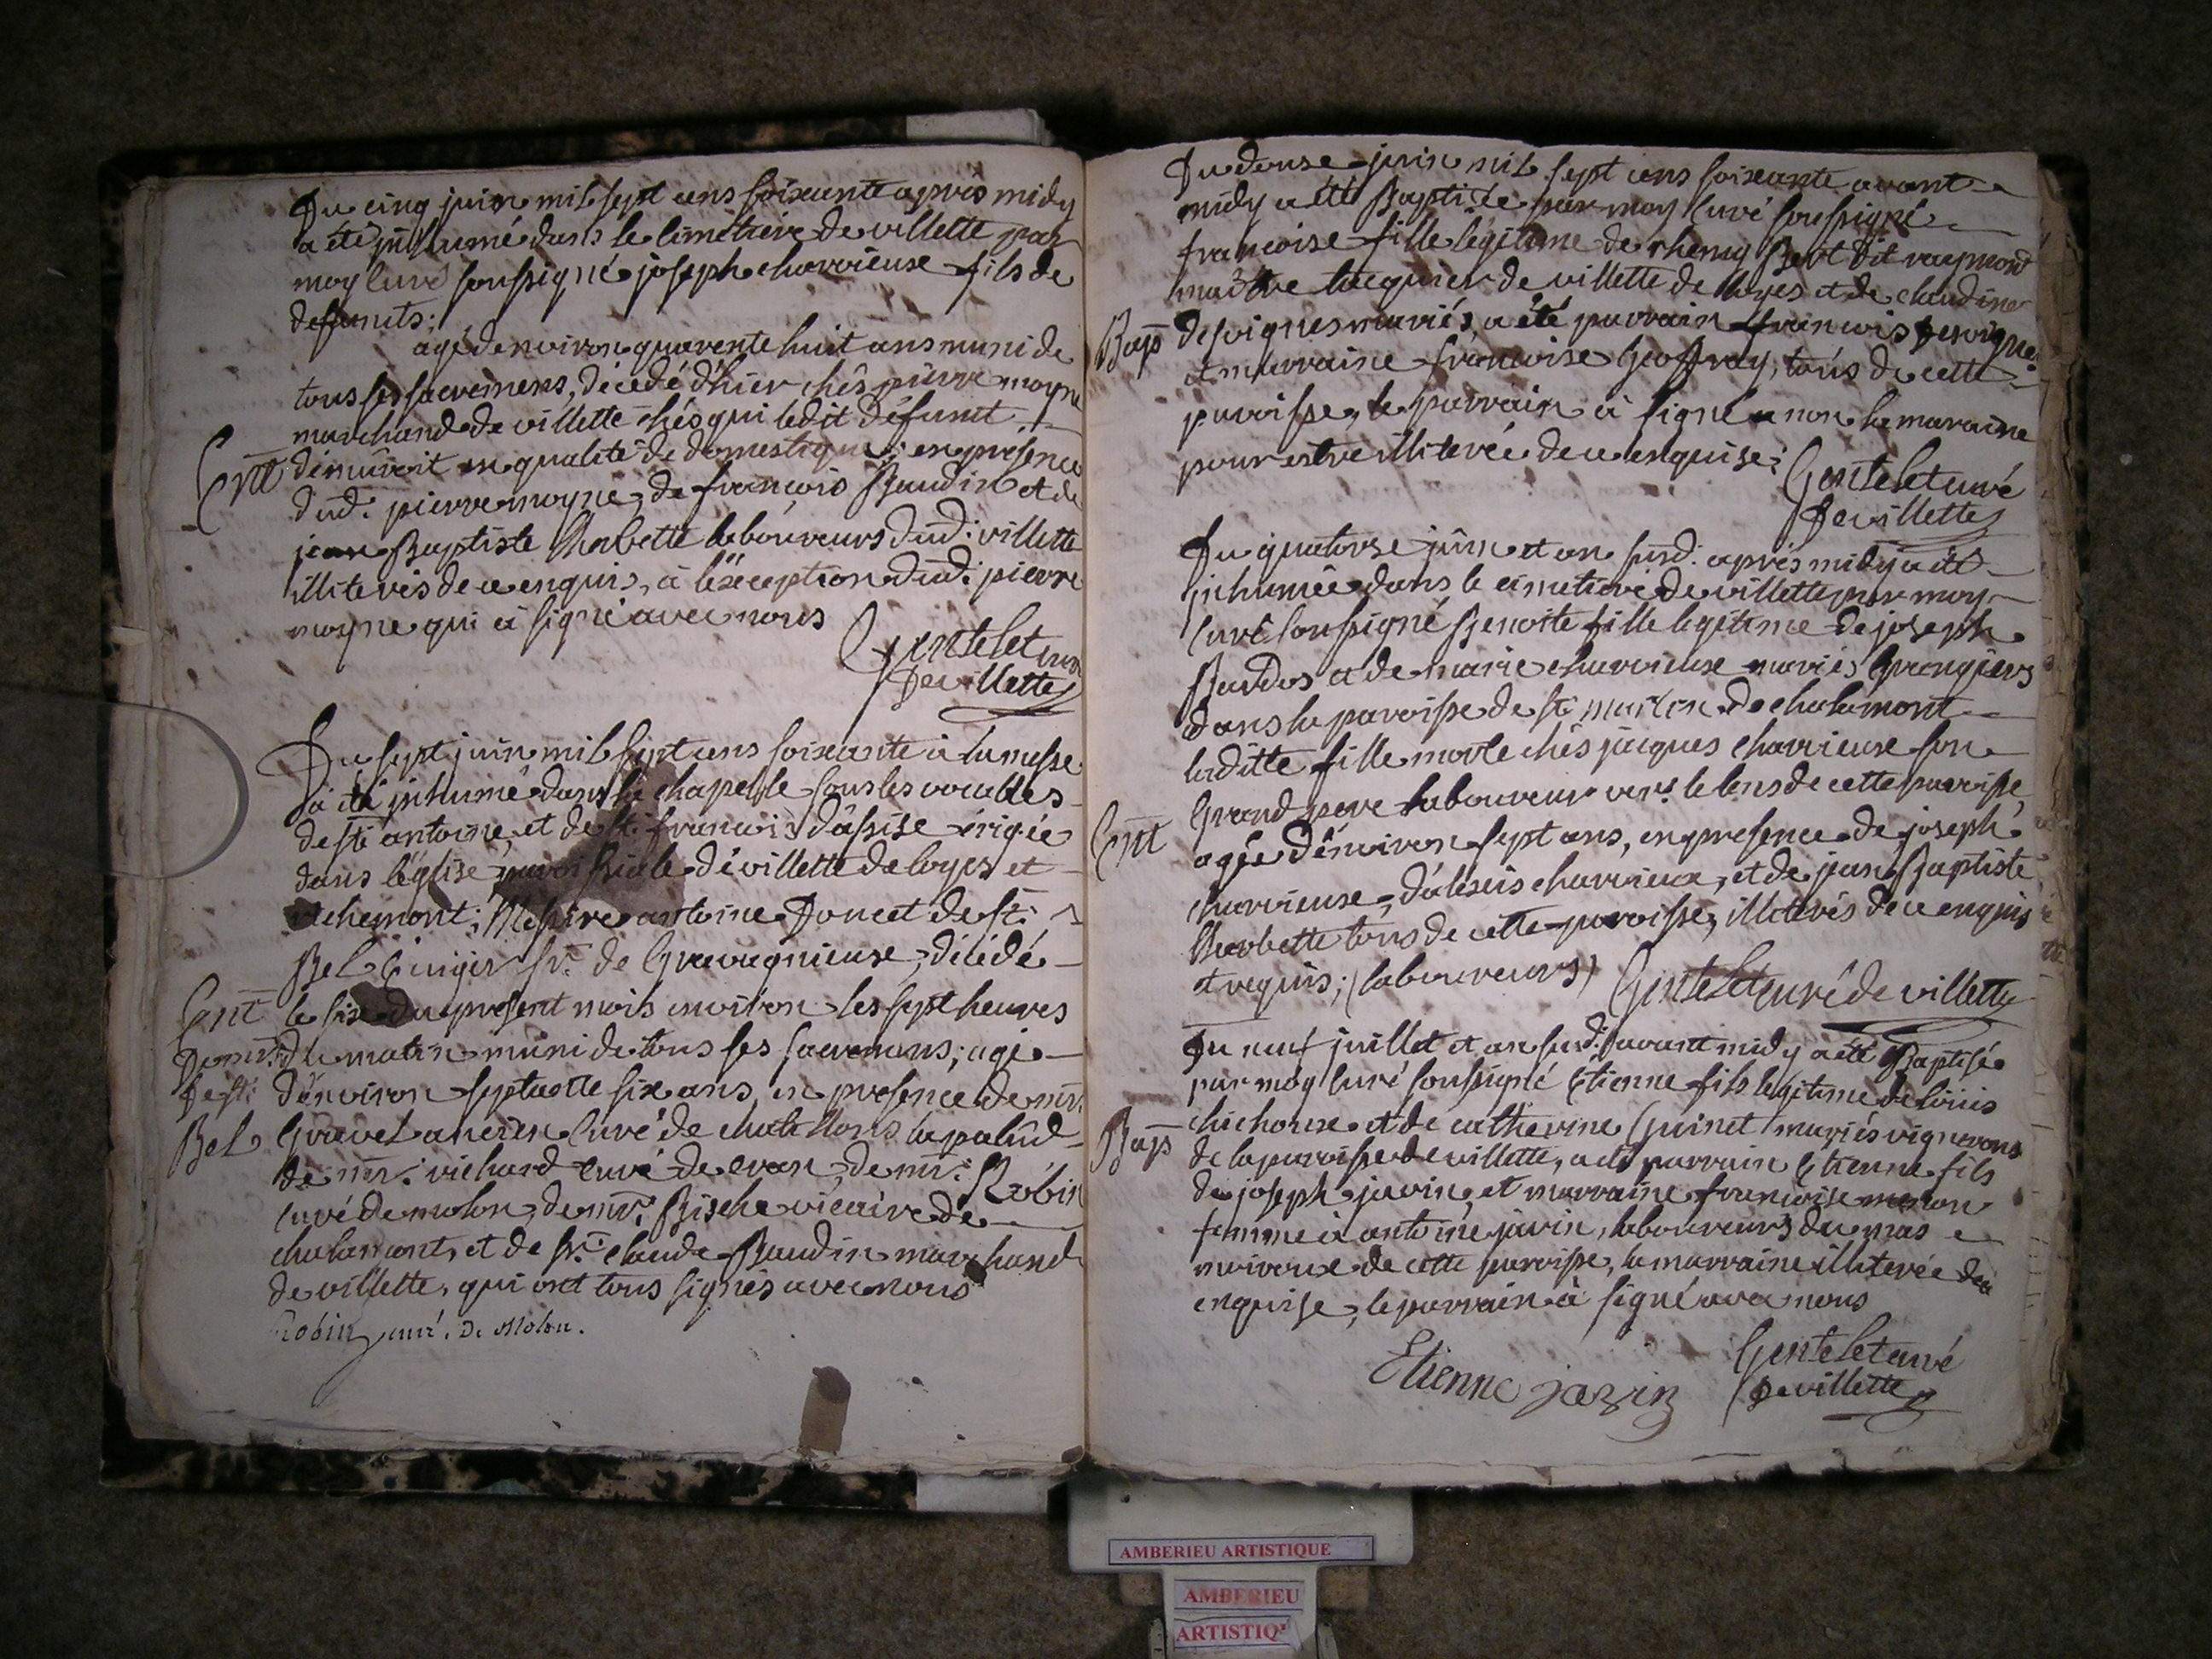 Du cinq juin mil sept cens soixante apres midy
a été inhumé dans le cimetiere de villette par
moy curé soussigné joseph charvieuse fils de
defunts;
agé denviron quarente huit ans muni de
tous ses sacremens, décedé d'hier chés pierre moyne
marchand de villette chés qui ledit défunt
Entt demeuroit en qualité de domestique; en présence
dud: pierre moyne, de françois Baudin et de
jean Baptiste Barbette laboureurs dud: villette
illiterés de ce enquis, à l'éxception dud: pierre
moyne qui à signé avec nous
Gentelet curé
de villette
Du sept juin mil sept cens soixante à la messe
a été inhumé dans la chapelle sous les vocables
de st: antoine, et de st: francois d'assise érigée
dans l'église paroissiale de villette de loyes et
richemont; Messire antoine Doncet de st:
Bel sr: de Gravagnieuse, décédé
Entt le six du present mois environ les sept heures
De mr: du matin muni de tous ses sacremens; agé
de st: d'environ septante six ans, en presence de mr:
Bel Gravet ancien curé de chatillons la palud
de mr: richard curé de cran, de mr: Robin
curé de molon, de mr: Bische vicaire de
chalamont, et de sr: claude Baudin marchand
de villette, qui ont tous signés avec nous
Robin curé. De Molon.
Du douse juin mil sept cens soixante avant
midy a été Baptisée par moy curé soussigné
francoise fille légitime de rhemy Bert dit raymond
maitre de villette de loyes et de claudine
Bap desvignes mariés, a été parrain francois Desvigne
et marraine françoise Geoffray, tous de cette
paroisse, le parrain à signé a non la maraine
pour estre illiterée de ce enquise;
Gentelet curé
De villette
Du quatorse juin et an susd: aprés midy a été
inhumée dans le cimetiere de villette par moy
curé soussigné Benoite fille legitime de joseph
Bardos et de marie charvieuse mariés Grangiers
dans la paroisse de st: martin de chalamont
laditte fille morte chés jacques charvieuse son
Grand pere laboureur vers le lens de cette paroisse
Entt agée d'environ sept ans, en presence de joseph
charvieuse, d'alexis charvieux, et de jean Baptiste
Barbette tous de cette paroisse, illiterés de ce enquis
et requis; (laboureurs) Gentelet curé de villette
Du neuf juillet et an susd: avant midy a été Baptisé
par moy curé soussigné Etienne fils legitime de loüis
chichoux et de catherine Guinet mariés vignerons
Bap de la paroisse de villette, a été parrain Etienne fils
de joseph javin, et marraine francoise merlon
femme à antoine javin, laboureurs du mas
de cette paroisse, la marraine illiterée de ce
enquise, le parrain à signé avec nous
Etienne jazin
Gentelet curé
De villette
AMBERIEU ARTISTIQUE
AMBERIEU
ARTISTIQ